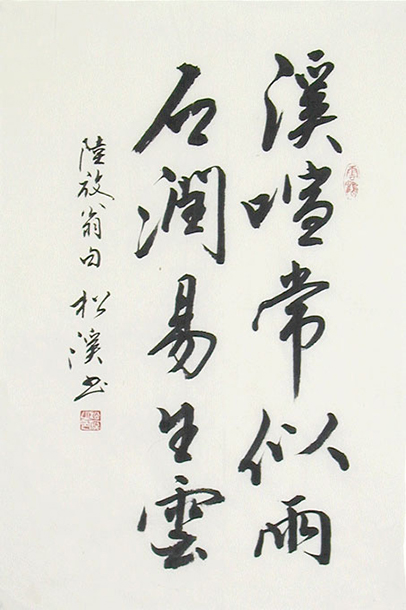 溪喧常似雨
石潤易生雲
陸放翁句 松溪书